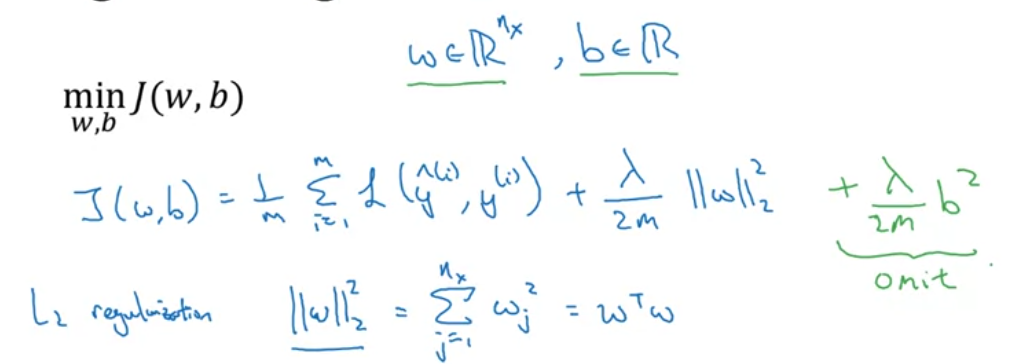 w ∈ ℝ^{n_x}, b ∈ ℝ
min_{w,b} J(w, b)
J(w,b) = 1/m Σ_{i=1}^{m} L(ŷ^{(i)}, y^{(i)}) + λ/2m ||w||_2^2 + λ/2m b^2
omit
L_2 regularization ||w||_2^2 = Σ_{j=1}^{n_x} w_j^2 = w^T w